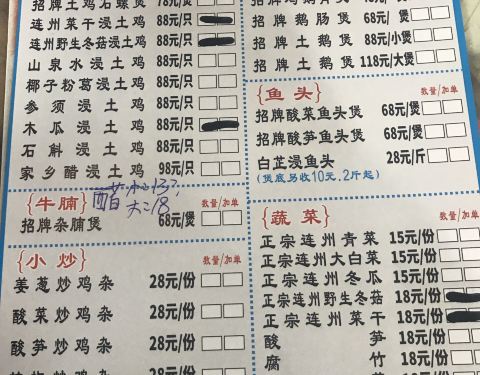 招牌土鸡石螺煲 78元/煲
连州菜干浸土鸡 88元/只
连州野生冬菇浸土鸡 88元/只
山泉水浸土鸡 88元/只
椰子粉葛浸土鸡 88元/只
参须浸土鸡 88元/只
木瓜浸土鸡 88元/只
石斛浸土鸡 88元/只
家乡醋浸土鸡 98元/只
{牛腩} 数量/加单
招牌杂腩煲 68元/煲
{小炒} 数量/加单
姜葱炒鸡杂 28元/份
酸菜炒鸡杂 28元/份
酸笋炒鸡杂 28元/份
招牌鹅肠煲 68元/煲
招牌土鹅煲 88元/小煲
招牌土鹅煲 118元/大煲
{鱼头} 数量/加单
招牌酸菜鱼头煲 68元/煲
招牌酸笋鱼头煲 68元/煲
白芷浸鱼头 28元/斤
(煲底另收10元,2斤起)
{蔬菜} 数量/加单
正宗连州青菜 15元/份
正宗连州大白菜 15元/份
正宗连州冬瓜 15元/份
正宗连州野生冬菇 18元/份
正宗连州菜干 18元/份
酸笋 18元/份
腐竹 18元/份